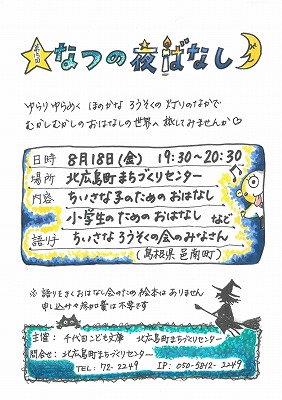 なつの夜ばなし
ゆらりゆらめく ほのかな ろうそくの灯りのなかで
むかしむかしの おはなしの世界へ 旅してみませんか♡
日時 8月18日(金) 19:30~20:30
場所 北広島町まちづくりセンター
内容 ちいさな子のための おはなし
小学生のための おはなし など
語り手 ちいさなろうそくの会のみなさん
(島根県 邑南町)
※ 語りをきくおはなし会のため 絵本はありません
申し込みや参加費は不要です
主催: 千代田こども文庫 北広島町まちづくりセンター
問合せ: 北広島町まちづくりセンター
TEL: 72-2249 IP: 050-5812-2249